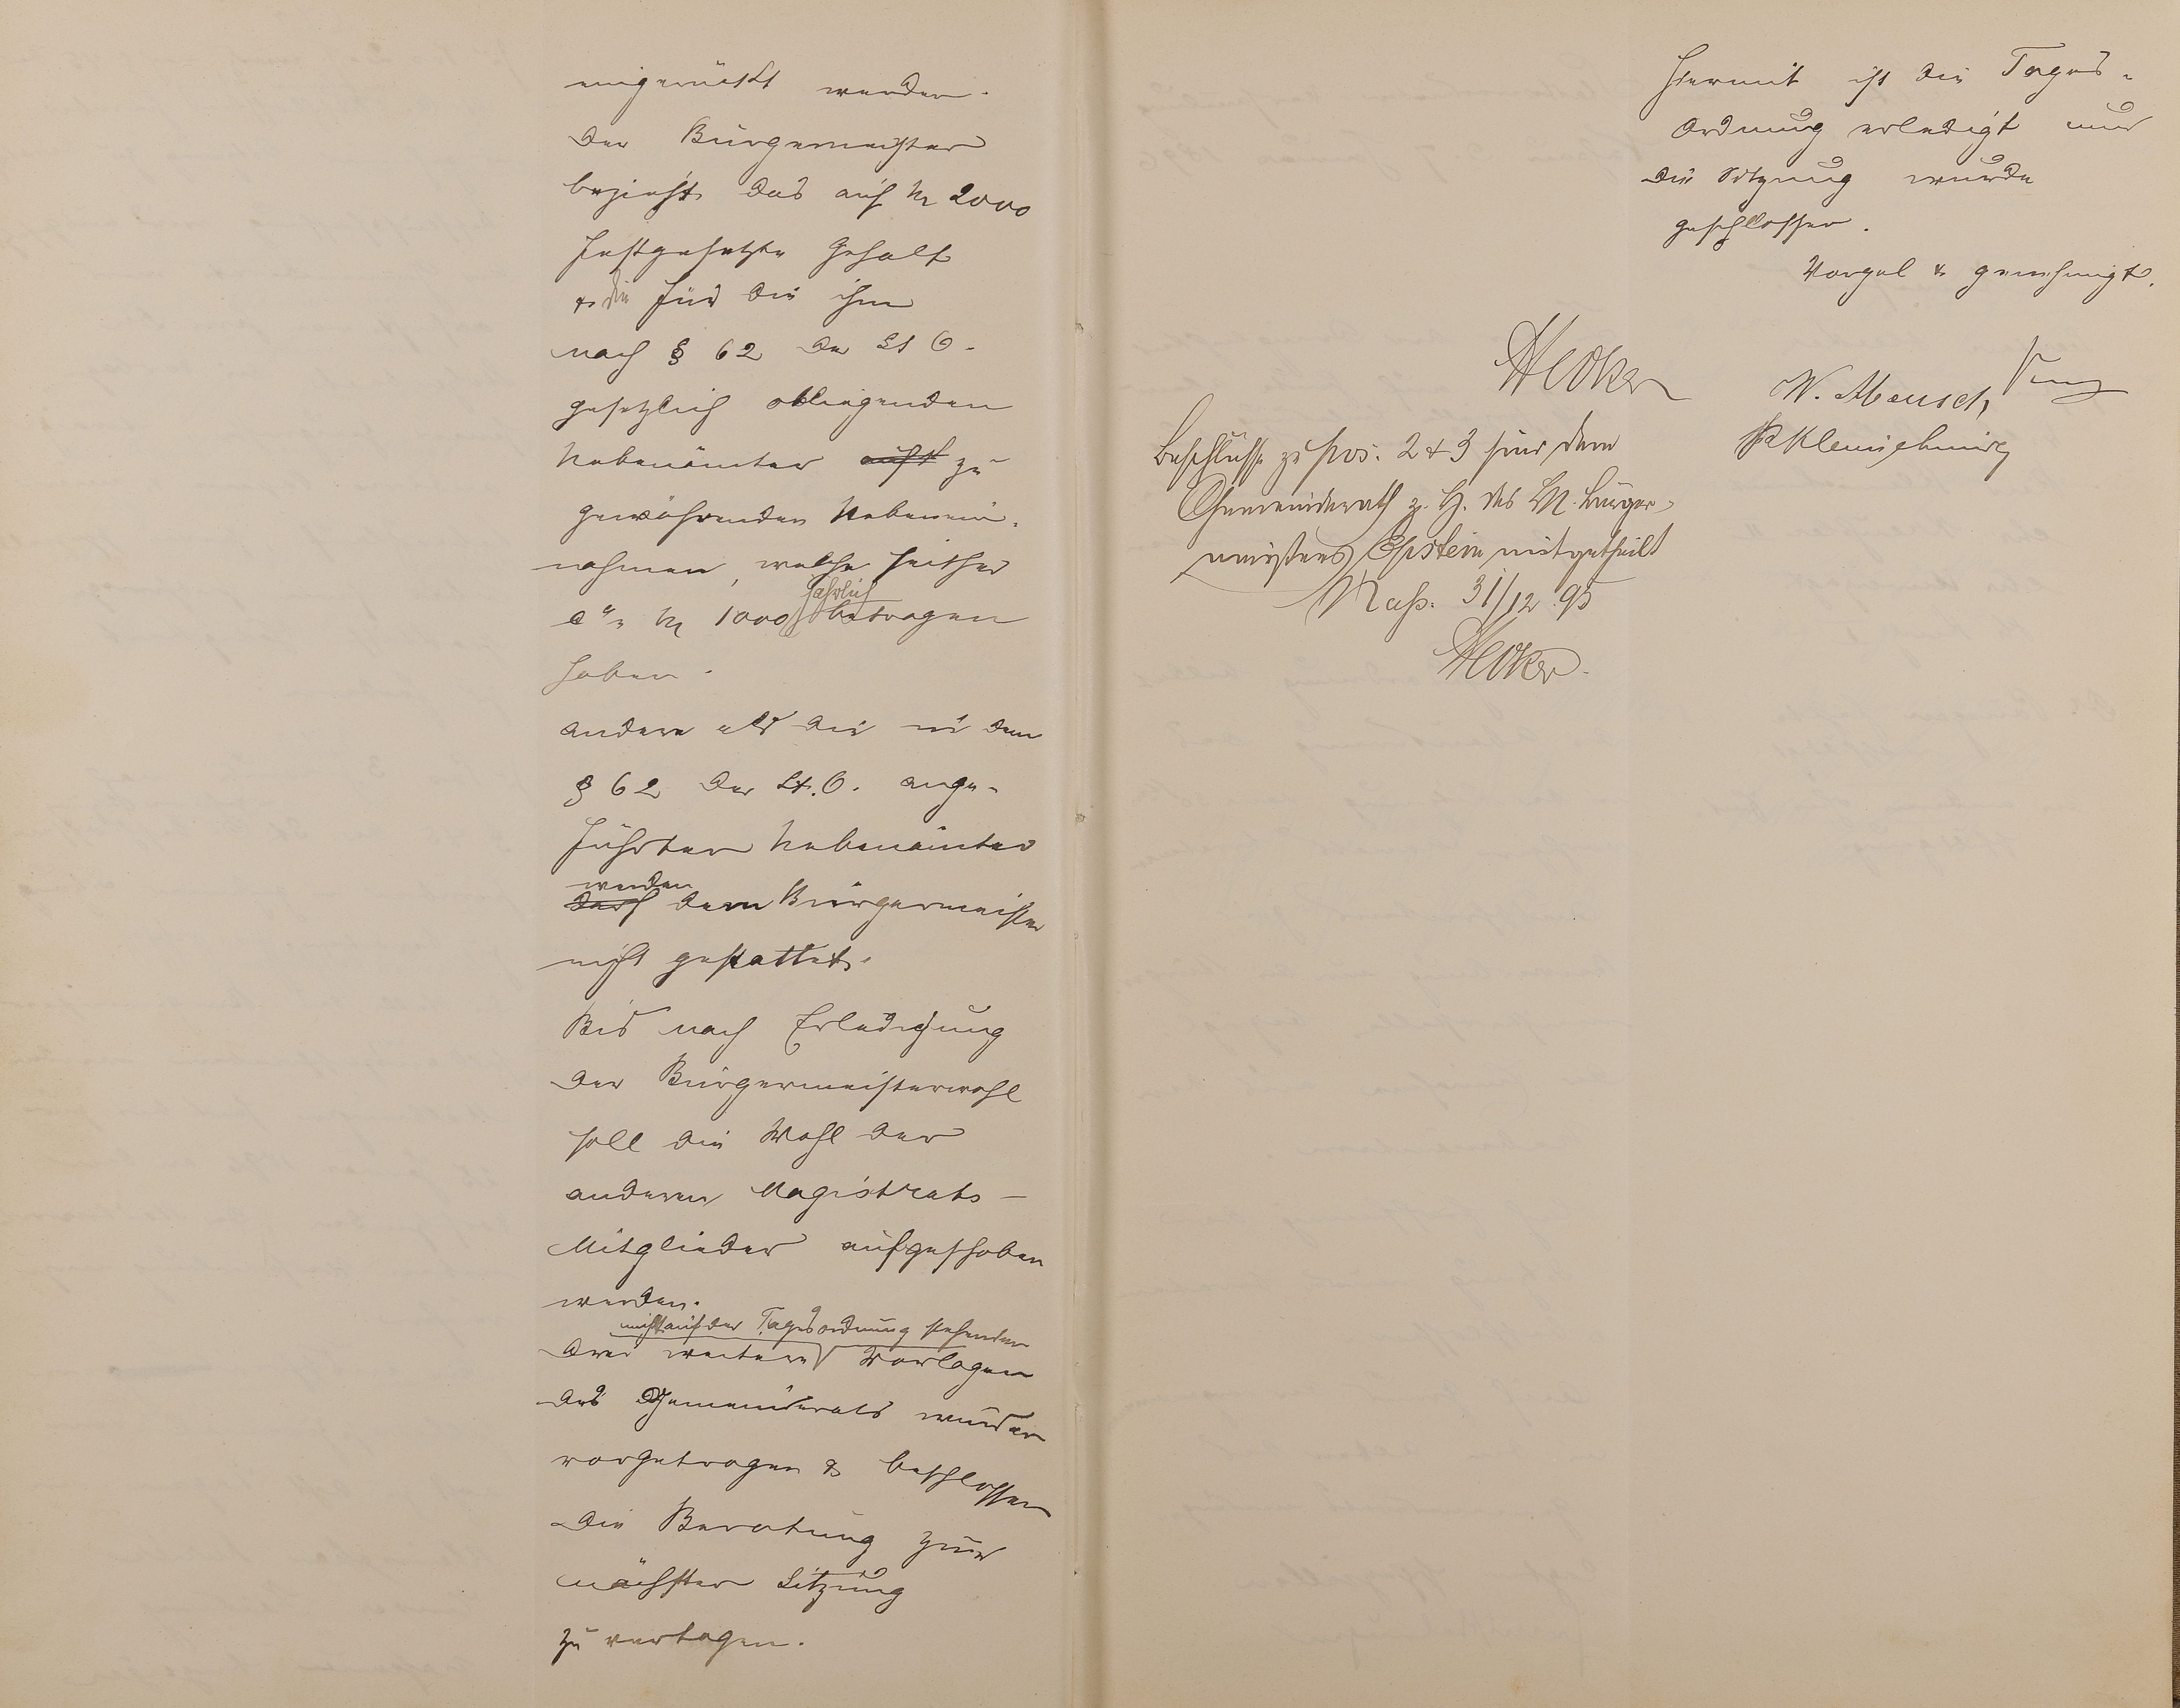 eingerückt werden.
Der Bürgermeister
bezieht das auf M 2000
festgesetzte Gehalt
& die für die ihm
nach § 62 der St O.
gesetzlich obliegenden
Nebenämter zu
gewährenden Nebenein-
nahmen, welche seither
ca. M 1000 jährlich betragen
haben.
andere als die in dem
§ 62 der St. O. ange-
führten Nebenämter
werden
darf dem Bürgermeister
nicht gestattet.
Bis nach Erledigung
der Bürgermeisterwahl
soll die Wahl der
anderen Magistrats-
Mitglieder aufgeschoben
werden.
nicht auf der Tagesordnung stehenden
Drei weitere Vorlagen
des Gemeinderats wurden
vorgetragen & beschlossen
die Beratung zur
nächsten Sitzung
zu vertagen.
Hiermit ist die Tages-
Ordnung erledigt und
die Sitzung wurde
geschlossen.
Vorgel. & genehmigt.
W. Mensch,
Kleinschmidt
Beschlüsse zu pos. 2 & 3 sind dem
Gemeinderath z. H. des H. Bürger-
meisters Epstein mitgetheilt
31/12 95